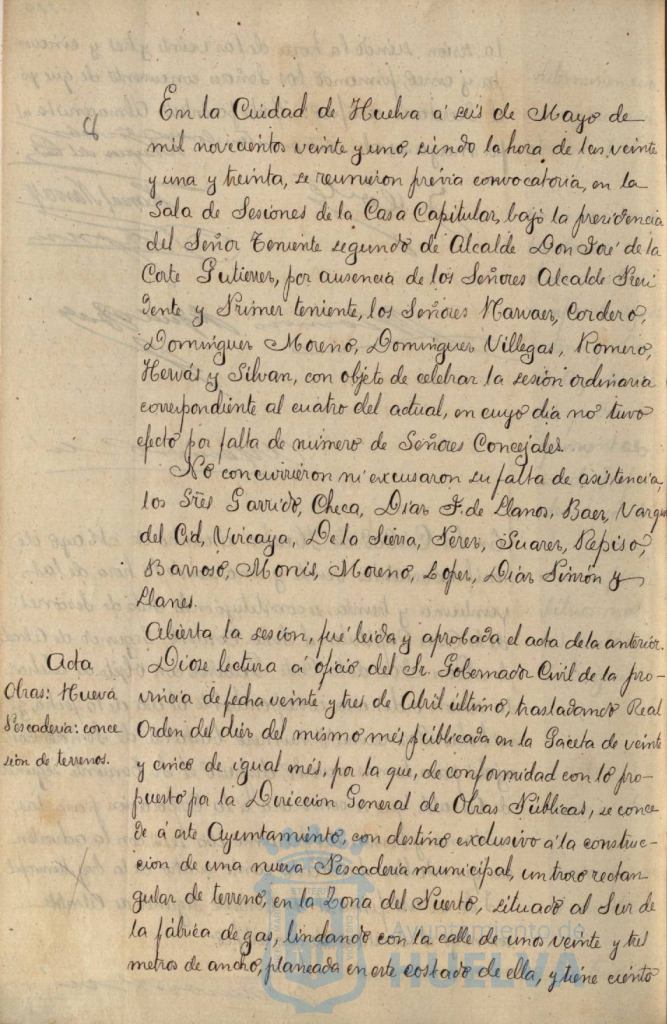 8
En la Cuidad de Huelva á seis de Mayo de
mil novecientos veinte y uno, siendo la hora de las veinte
y una y treinta, se reunieron previa convocatoria, en la
Sala de Sesiones de la Casa Capitular, bajo la presidencia
del Señor Teniente segundo de Alcalde Don José de la
Corte Gutierrez, por ausencia de los Señores Alcalde Presi
dente y Primer teniente, los Señores Narvaez, Cordero,
Dominguez Moreno, Dominguez Villegas, Romero,
Hervás y Silvan, con objeto de celebrar la sesion ordinaria
correspondiente al cuatro del actual, en cuyo dia no tuvo
efecto por falta de número de Señores Concejales.
No concurrieron ni excusaron su falta de asistencia,
los Sres Garrido, Checa, Diaz F. de Llanos, Baez, Vargas
del Cid, Vizcaya, De la Sierra, Perez, Suarez, Repiso,
Barroso, Monis, Moreno, Lopez, Diáz Simron y
Llanes.
Abierta la sesion, fué leida y aprobada el acta de la anterior.
Acta
Obras: Nueva
Pescadería: conce
sion de terrenos.
Diose lectura á oficio del Sr. Gobernador Civil de la pro-
vincia de fecha veinte y tres de Abril último, trasladando Real
Orden del diez del mismo més publicada en la Gaceta de veinte
y cinco de igual més, por la que, de conformidad con lo pro-
puesto por la Direccion General de Obras Públicas, se conce
de á este Ayuntamiento, con destino exclusivo á la construc-
cion de una nueva Pescaderia municipal, un trozo rectan-
gular de terreno, en la Zona del Puerto, situado al Sur de
la fábrica de gas, lindando con la calle de unos veinte y tres
metros de ancho, planeada en este costado de ella, y tiene ciento
Ayuntamiento de
HUELVA